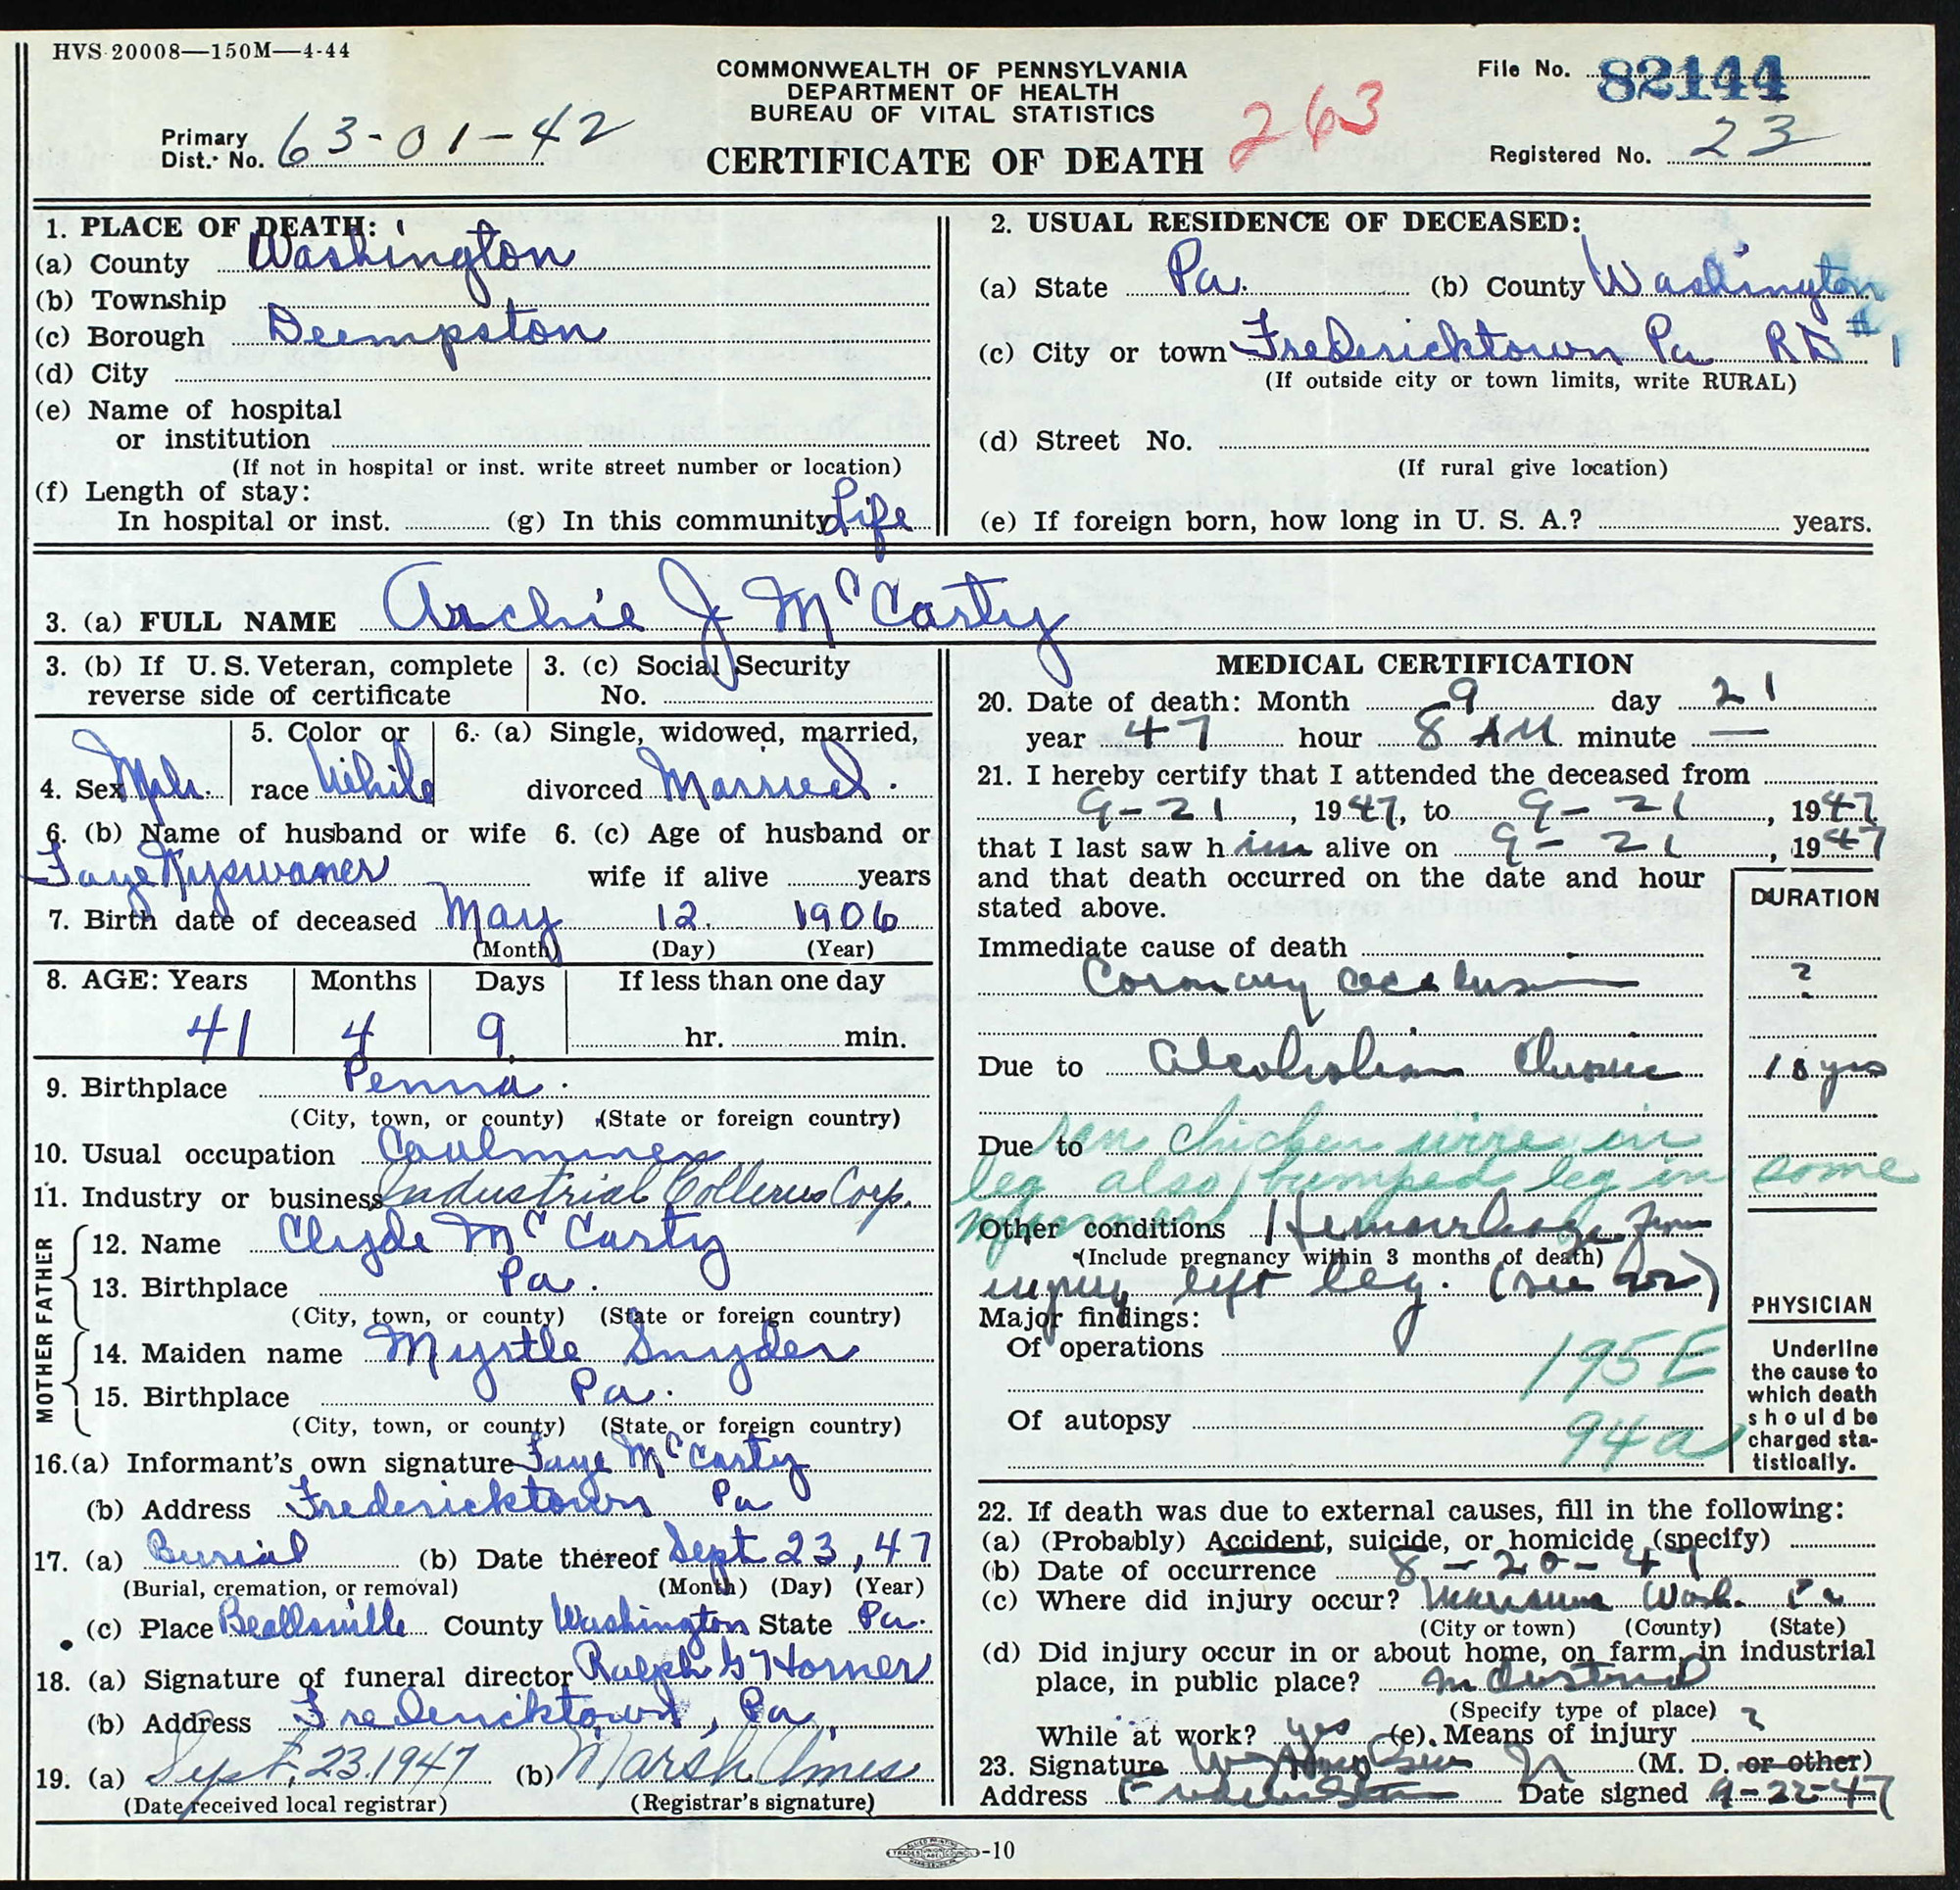 HVS 20008—150M—4-44
COMMONWEALTH OF PENNSYLVANIA
DEPARTMENT OF HEALTH
BUREAU OF VITAL STATISTICS
CERTIFICATE OF DEATH
263
File No. 82144
Primary
Dist. No. 63-01-42
Registered No. 23
1. PLACE OF DEATH:
(a) County Washington
(b) Township
(c) Borough Deempston
(d) City
(e) Name of hospital
or institution
(If not in hospital or inst. write street number or location)
(f) Length of stay:
In hospital or inst. (g) In this community Life
2. USUAL RESIDENCE OF DECEASED:
(a) State Pa. (b) County Washington
(c) City or town Fredericktown Pa RD #1
(If outside city or town limits, write RURAL)
(d) Street No.
(If rural give location)
(e) If foreign born, how long in U. S. A.? years.
3. (a) FULL NAME Archie J McCarty
3. (b) If U. S. Veteran, complete
reverse side of certificate
3. (c) Social Security
No.
4. Sex Male
5. Color or
race White
6. (a) Single, widowed, married,
divorced Married
6. (b) Name of husband or wife 6. (c) Age of husband or
Faye Nyswaner wife if alive years
7. Birth date of deceased May 12. 1906
(Month) (Day) (Year)
8. AGE: Years Months Days If less than one day
41 4 9 hr. min.
9. Birthplace Penna.
(City, town, or county) (State or foreign country)
10. Usual occupation Coalminer
11. Industry or business Industrial Collerus Corp.
FATHER
12. Name Clyde McCarty
13. Birthplace Pa.
(City, town, or county) (State or foreign country)
MOTHER
14. Maiden name Myrtle Snyder
15. Birthplace Pa.
(City, town, or county) (State or foreign country)
16.(a) Informant's own signature Faye McCarty
(b) Address Fredericktown Pa
17. (a) Burial (b) Date thereof Sept 23, 47
(Burial, cremation, or removal) (Month) (Day) (Year)
(c) Place Beallsville County Washington State Pa.
18. (a) Signature of funeral director Ralph G Horner
(b) Address Fredericktown, Pa.
19. (a) Sept. 23. 1947 (b) Marsh Amos
(Date received local registrar) (Registrar's signature)
MEDICAL CERTIFICATION
20. Date of death: Month 9 day 21
year 47 hour 8 AM minute —
21. I hereby certify that I attended the deceased from
9-21, 1947, to 9-21, 1947
that I last saw him alive on 9-21, 1947
and that death occurred on the date and hour
stated above.
DURATION
Immediate cause of death
Coronary occlusion ?
Due to Alcoholism Chronic 18 yrs
Due to ran chicken wire in
leg also bumped leg in some
manner
Other conditions Hemorrhage from
(Include pregnancy within 3 months of death)
injury left leg. (see 22)
Major findings:
Of operations
195E
Of autopsy
94a
PHYSICIAN
Underline
the cause to
which death
should be
charged sta-
tistically.
22. If death was due to external causes, fill in the following:
(a) (Probably) Accident, suicide, or homicide (specify)
(b) Date of occurrence 8-20-47
(c) Where did injury occur? Marianna Wash. Pa
(City or town) (County) (State)
(d) Did injury occur in or about home, on farm, in industrial
place, in public place? Industrial
(Specify type of place)
While at work? yes (e) Means of injury ?
23. Signature (M. D. or other)
Address Date signed 9-22-47
ALLIED PRINTING
TRADES UNION LABEL COUNCIL
HARRISBURG, PA.
-10